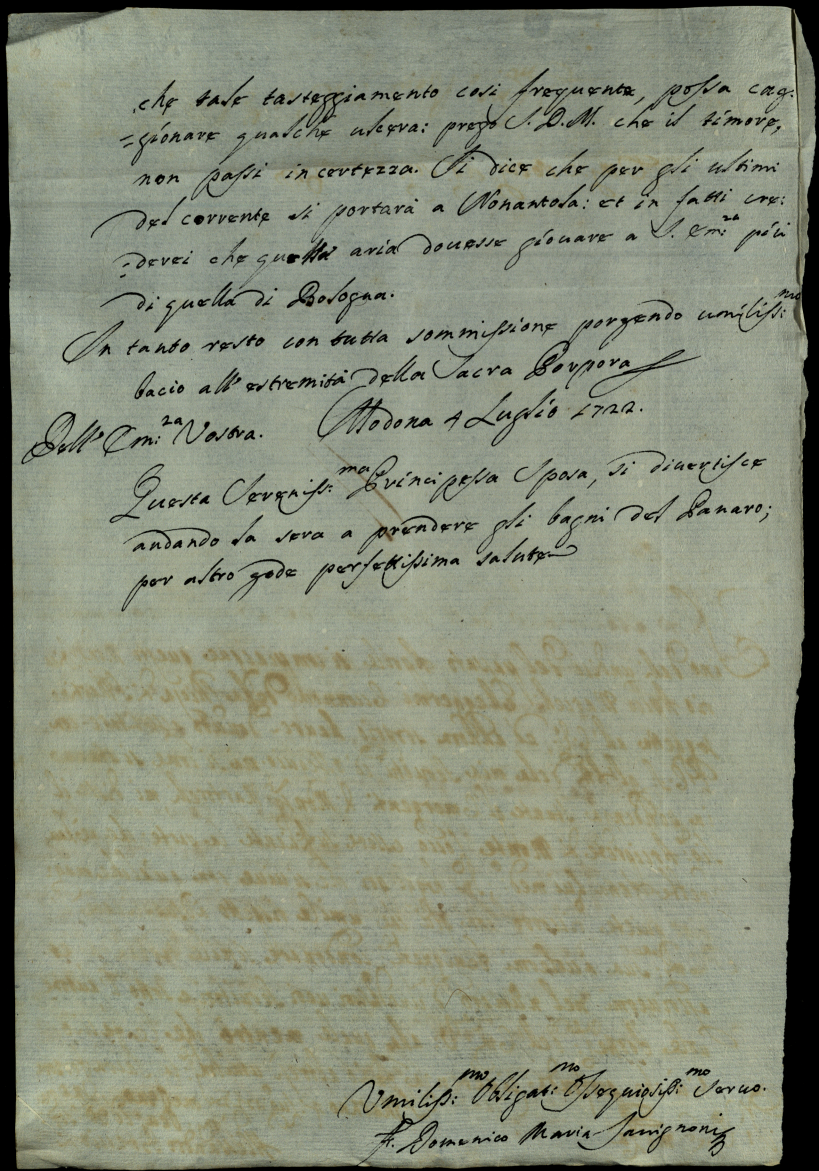 che tale tasteggiamento così frequente, possa cag:
=gionare qualche ulcera: prego S. D. M. che il timore,
non passi in certezza. Si dice che per gli ultimi
del corrente si portarà a Nonantola: et in fatti cre:
=derei che quella aria dovesse giovare a S. Em:za più
di quella di Bologna.
In tanto resto con tutta sommissione porgendo umiliss:mo
bacio all'estremità della Sacra Porpora
Dell' Em:za Vostra. Modona 4 Luglio 1722.
Questa Sereniss:ma Principessa Sposa, si divertisce
andando la sera a prendere gli bagni del Panaro;
per altro gode perfettissima salute
Umiliss:mo Obligat:mo Ossequiosiss:mo Servo.
F. Domenico Maria Savignoni